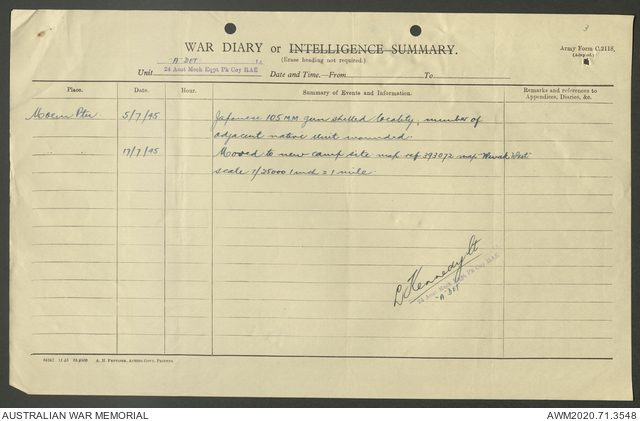 3
WAR DIARY or INTELLIGENCE SUMMARY.
(Erase heading not required.)
Army Form C.2118.
"A" DET
Unit 24 Aust Mech Eqpt Pk Coy RAE
Date and Time.—From To
Place. Date. Hour. Summary of Events and Information. Remarks and references to Appendices, Diaries, &c.
Moem Ptn 5/7/45 Japanese 105 MM gun shelled locality, number of
adjacent native unit wounded.
17/7/45 Moved to new camp site map ref 393072 map Wewak West
scale 1/25000 1 inch = 1 mile
L Kennedy Lt
24 Aust Mech Eqpt Pk Coy RAE
"A" DET
AUSTRALIAN WAR MEMORIAL
AWM2020.71.3548